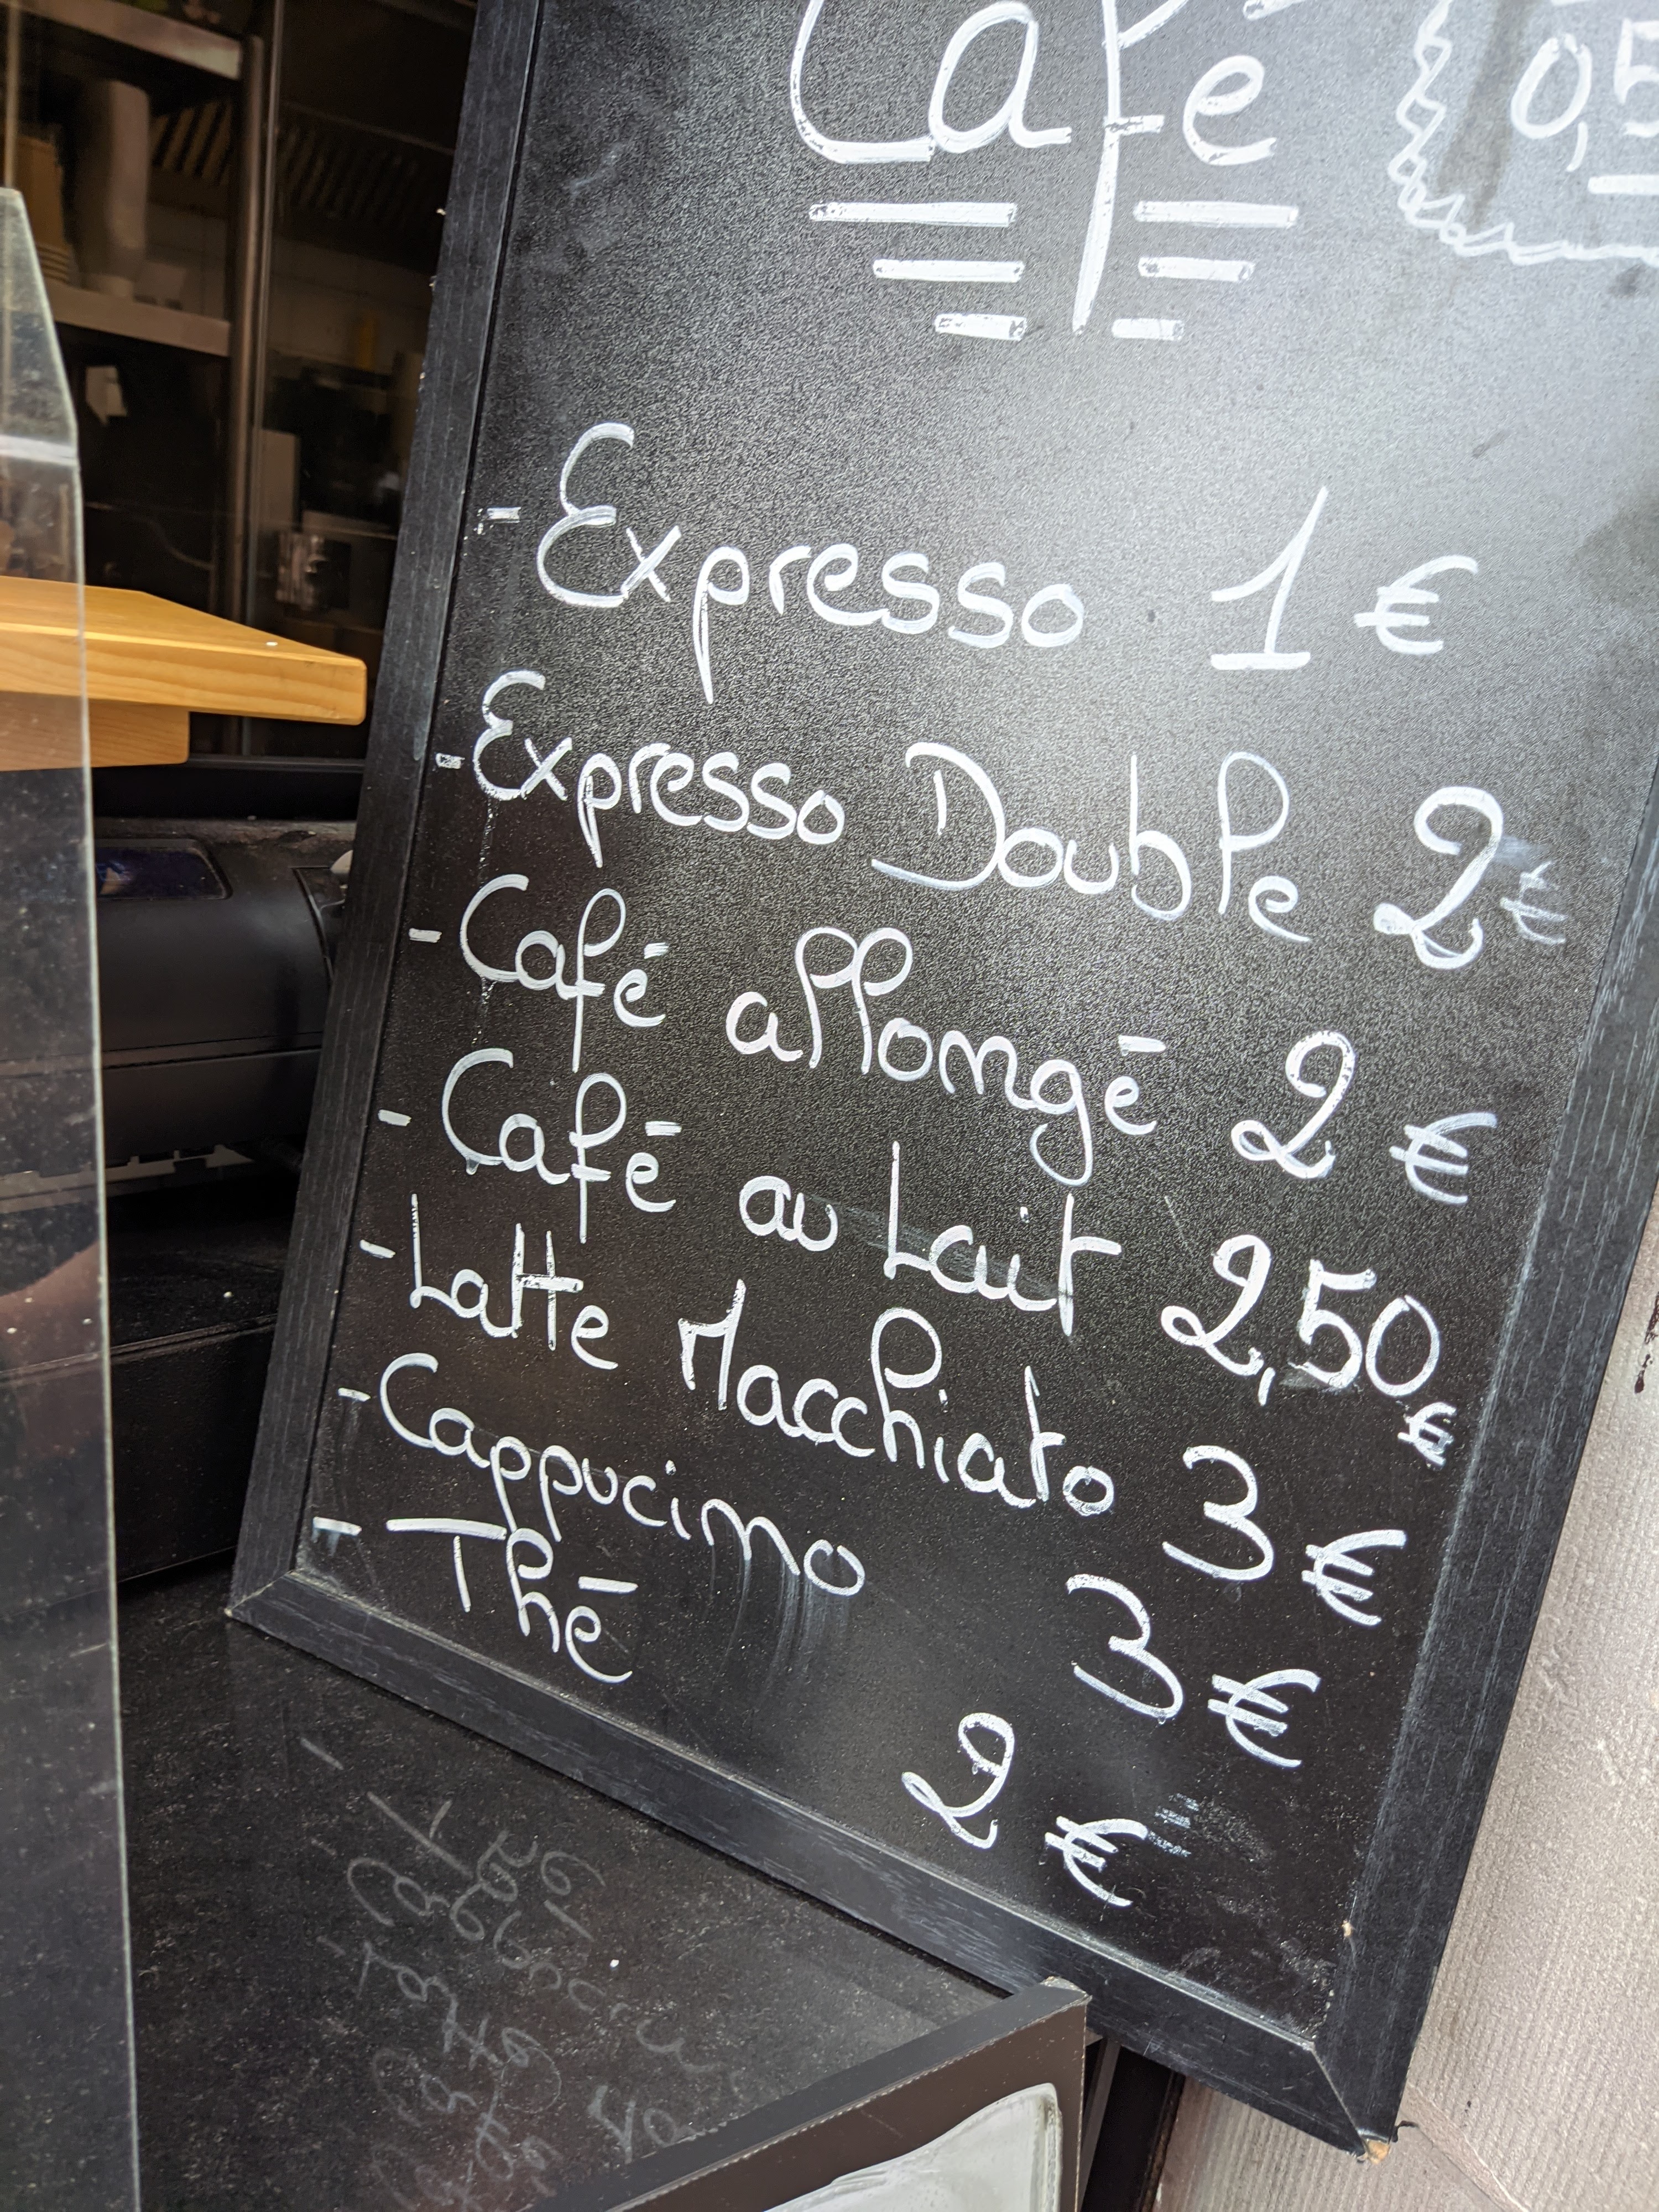 Café
0,5
- Expresso 1 €
- Expresso Double 2 €
- Café allongé 2 €
- Café au Lait 2,50 €
- Latte Macchiato 3 €
- Cappucino 3 €
- Thé 2 €